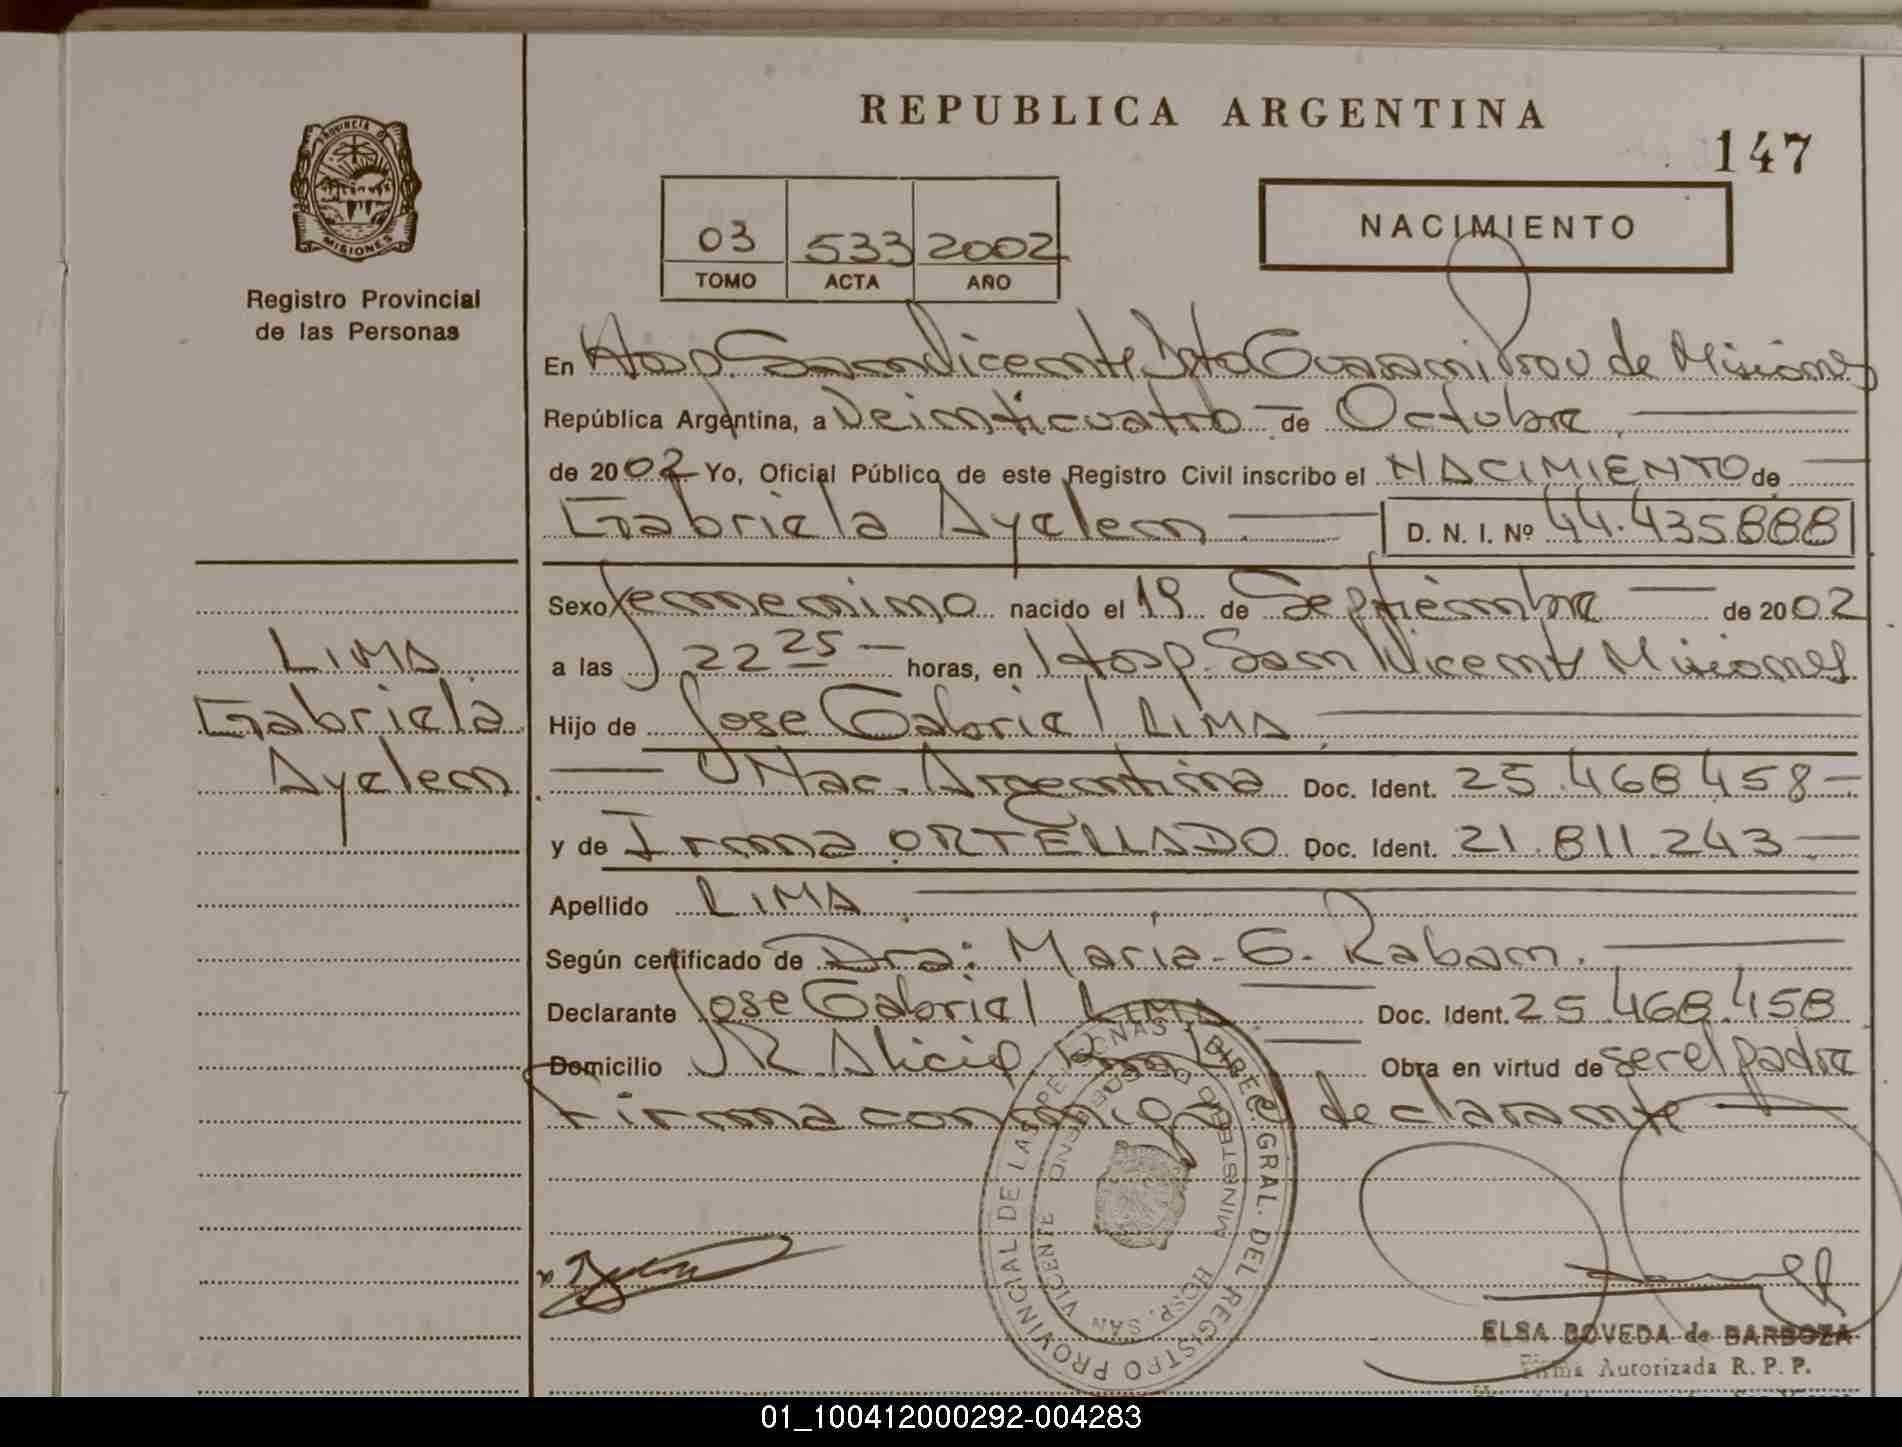 REPUBLICA ARGENTINA
147
PROVINCIA DE
MISIONES
Registro Provincial
de las Personas
03 533 2002
TOMO ACTA AÑO
NACIMIENTO
En Hosp. San Vicente Dto Guarani Prov de Misiones
República Argentina, a Veinticuatro de Octubre
de 2002 Yo, Oficial Público de este Registro Civil inscribo el NACIMIENTO de
Gabriela Ayelem D. N. I. Nº 44.435.888
Sexo femenino nacido el 19 de Septiembre de 2002
a las 22 25 horas, en Hosp. San Vicente Misiones
Hijo de Jose Gabriel LIMA
Nac. Argentina Doc. Ident. 25.468.458
y de Irma ORTELLADO Doc. Ident. 21.811.243
Apellido LIMA
Según certificado de Dra: Maria. G. Raban.
Declarante Jose Gabriel LIMA Doc. Ident. 25.468.458
Domicilio Alicia Obra en virtud de ser el padre
Firma conmigo declarante
LIMA
Gabriela
Ayelem
DIREC. GRAL. DEL REGISTRO PROVINCIAL DE LAS PERSONAS
MINISTERIO DE GOBIERNO
HOSP. SAN VICENTE
ELSA BOVEDA de BARBOZA
Firma Autorizada R. P. P.
01_100412000292-004283